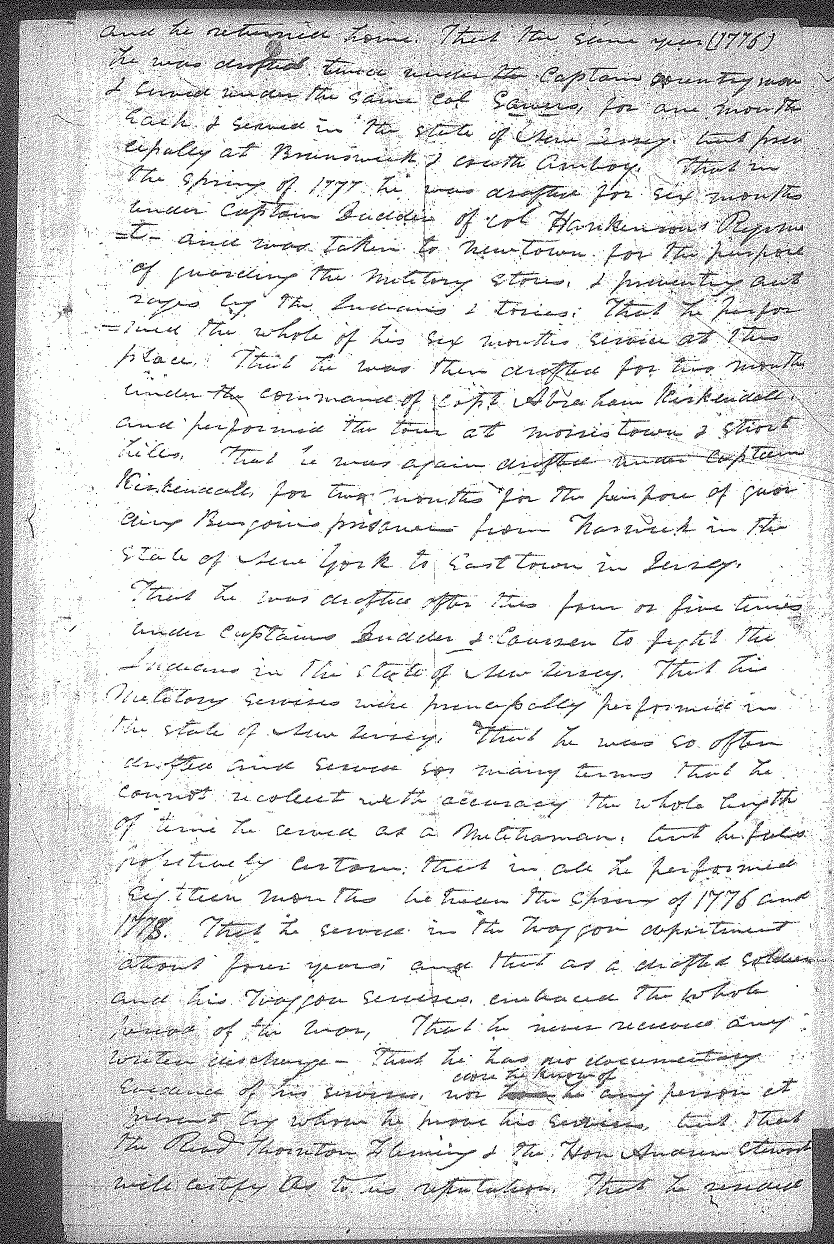 and he returned home. That the same year (1776)
he was drafted twice under the Captain
& served under the same Col for one month
Each & served in the state of New Jersey. but prin
cipally at Brunswick & South Amboy. That in
the Spring of 1777 he was drafted for six months
under Captain of Col Hankinsons Regime
=t- and was taken to Newtown for the purpose
of guarding the Military stores, & preventing out
rages by the Indians & tories: That he perfor
=med the whole of his six months service at this
place. That he was then drafted for two months
under the command of Capt Abraham Kirkendall.
and performed the tour at Morristown & Short
hills. That he was again drafted under Captain
Kirkendall, for two months for the purpose of guar
ding Burgoins prisoners from in the
State of New York to Easttown in Jersey.
That he was drafted after this four or five times
under Captains & Coursen to fight the
Indians in the State of New Jersey. That his
Military services were principally performed in
the state of New Jersey. That he was so often
drafted and served so many terms that he
cannot recolect with accuracy the whole length
of time he served as a Militiaman, but he feels
positively certain, that in all he performed
Eighteen months between the Spring of 1776 and
1778. That he served in the Waggon department
about four years; and that as a drafted soldier
and his Waggon services, embraced the whole
period of the War, That he never received any
written discharge - That he has no documentary
does he know of
Evidence of his services, nor any person at
present by whom he prove his services, but that
the Revd Thornton Fleming & the Hon Andrew Stewart
will certify as to his reputation. That he resided